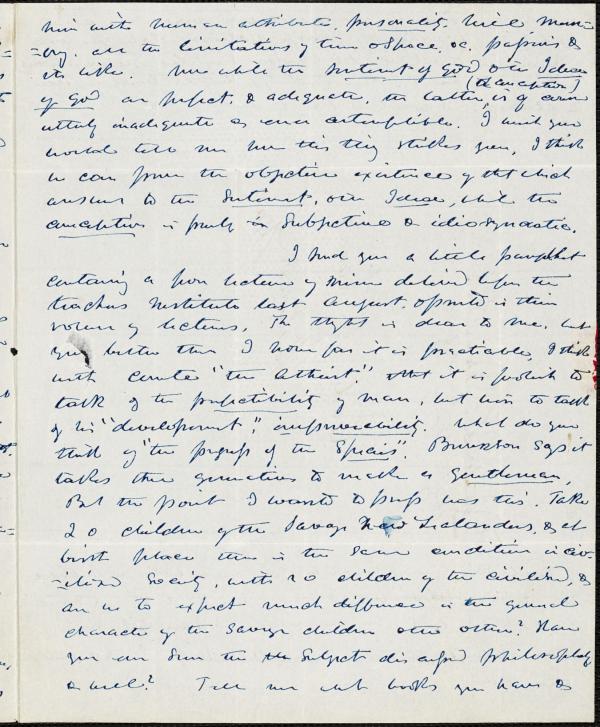 him with human attributes, personality, will, mem-
=ory, all the limitations of time & space, &c, passions &
its like. Now while the sentiment of God or the Idea
(the conception)
of God are perfect & adequate, the latter is of course
utterly inadequate as even contemptible. I wish you
would tell me how this thing strikes you, I think
we can prove the objective existence of that which
answers to the Sentiment, or the Idea, while the
conception is purely Subjective & idiosyncratic.
I send you a little pamphlet
containing a poor lecture of mine delivered before the
teachers Institute last August, & printed in their
volume of lectures. The thought is dear to me, but
you better than I know how far it is practicable, I think
with Comte "the Atheist," that it is foolish to
talk of the perfectibility of man, but wise to talk
of his "development," improvability. What do you
think of "the progress of the Species". Bramson says it
takes three generations to make a gentleman,
But the point I wanted to press was this. Take
20 children of the Savage New Zealanders, & at
birth place them in the same condition in civ-
=ilized Society, with 20 children of the civilized, &
are we to expect much difference in the general
character of the Savage children & the others? Have
you ever seen the Subject discussed philosophically
& well? Tell me what books you have &